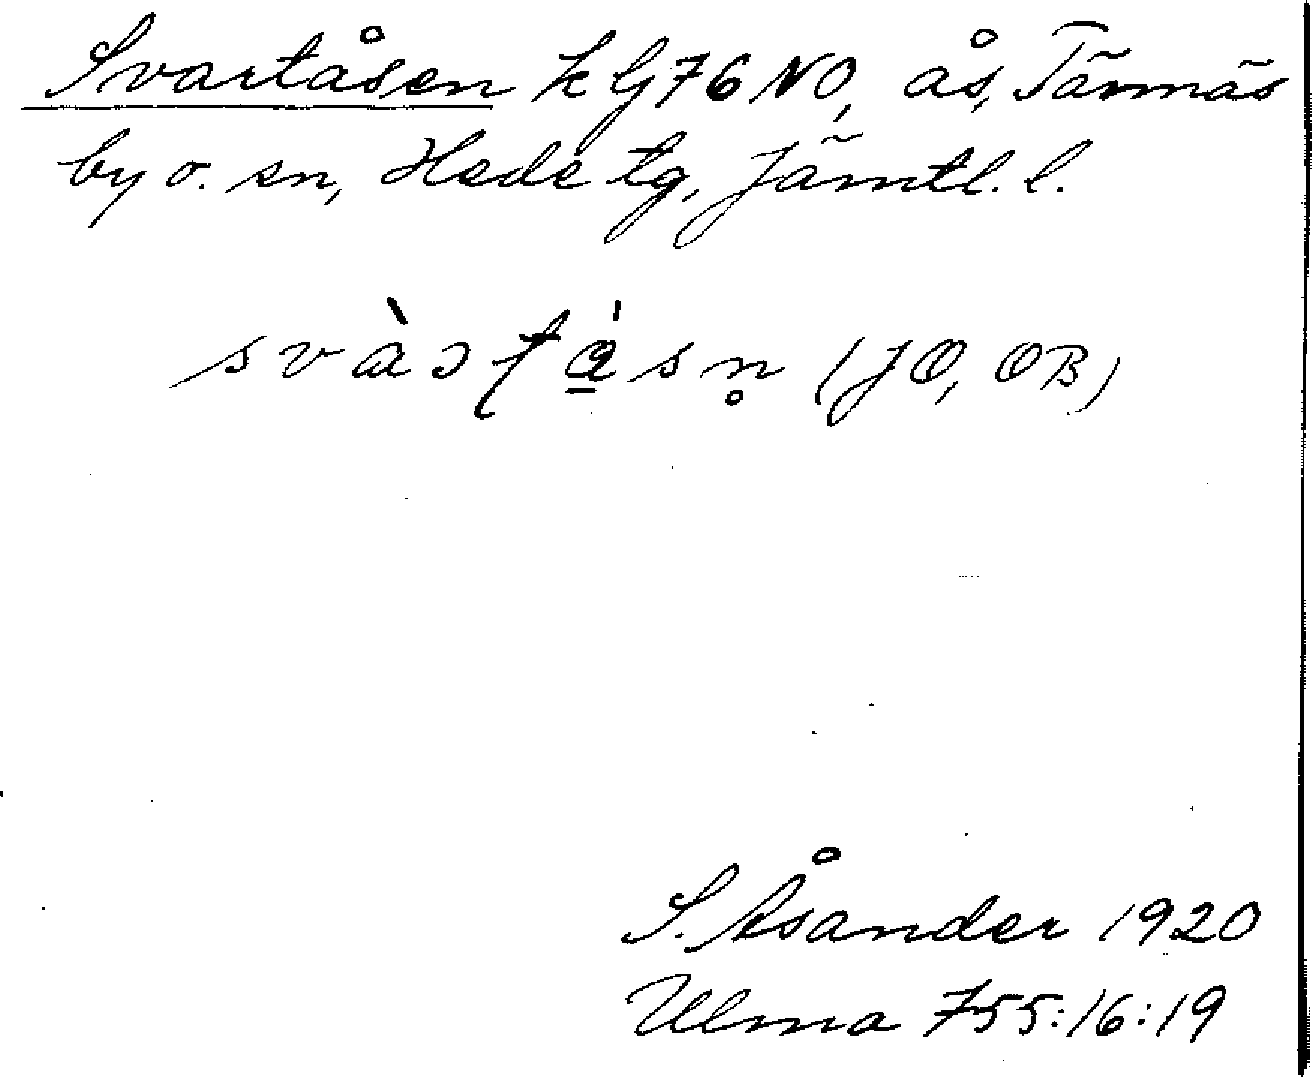 Svartåsen k G 76 NO, ås, Tännäs
by o. sn, Hede tg, Jämtl. l.
(JO, OB)
S. Åsander 1920
Ulma 755:16:19